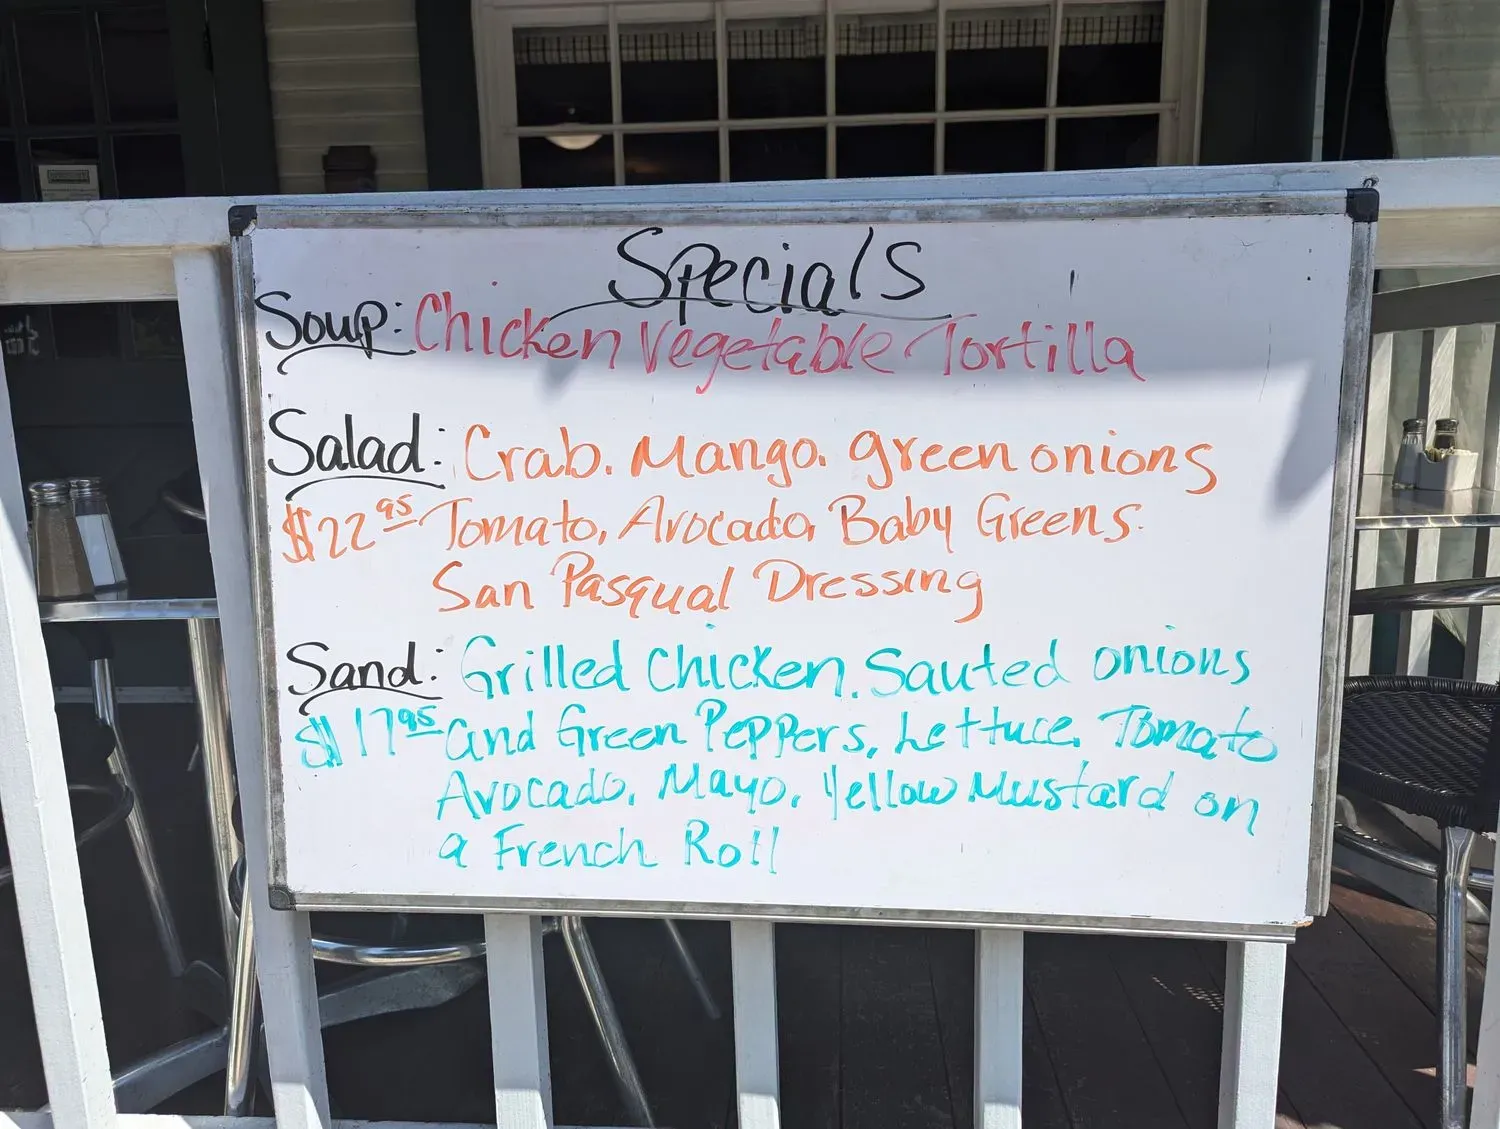 Specials
Soup: Chicken Vegetable Tortilla
Salad: Crab. Mango. green onions
$22 95 Tomato, Avocado, Baby Greens.
San Pasqual Dressing
Sand: Grilled Chicken. Sauted onions
$17 95 and Green Peppers, Lettuce. Tomato
Avocado, Mayo, Yellow Mustard on
a French Roll